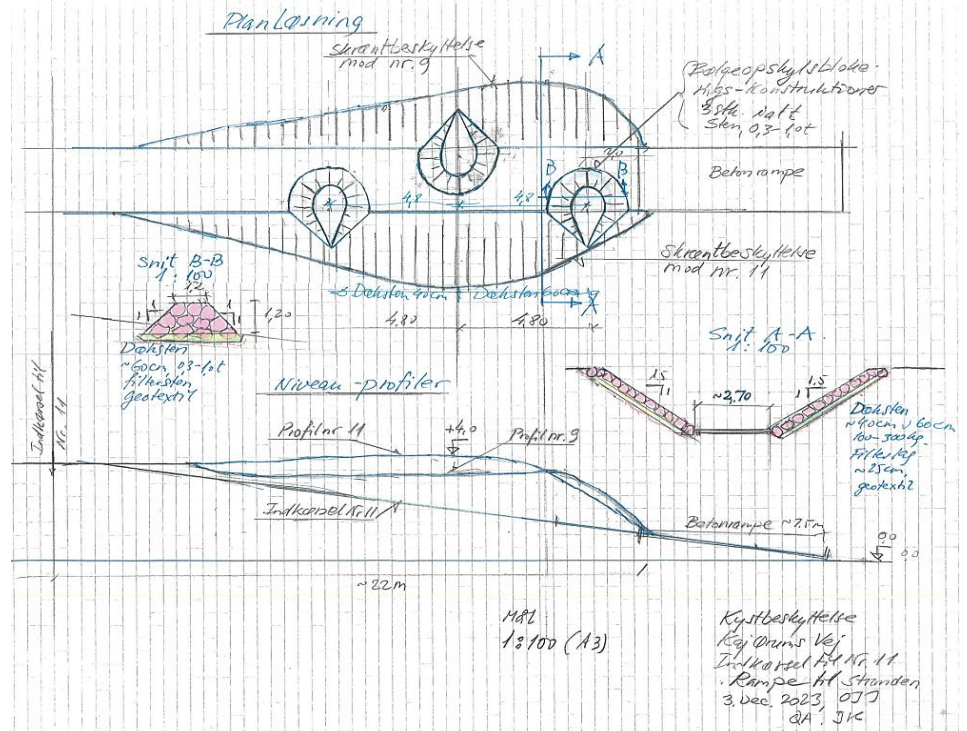 Planløsning
Skræntbeskyttelse
mod nr. 9
A
Bølgeopskylsbloke-
rings-konstruktioner
3 stk. ialt
Sten, 0,3-1,0t
2,0
Betonrampe
B B
4,8 4,8
Skræntbeskyttelse
mod nr. 11
Snit B-B
1:100
1,2
1 1
1 1
1,20
Dæksten 40cm Dæksten 60cm
A
4,80 4,80
Dæksten
~60cm, 0,3-1,0t
filtersten
geotextil
Snit A-A
1:100
1,5 1,5
1 1
~2,70
Dæksten
~40cm 60cm
100-300kg.
Filterlag
~25cm,
geotextil
Indkørsel til
Nr. 11
Niveau-profiler
Profil nr. 11
+4,0
Profil nr. 9
Indkørsel Nr 11
Betonrampe ~7.5m
0,0
0.0
~22m
Mål
1:100 (A3)
Kystbeskyttelse
Kaj Ørums Vej
Indkørsel til Nr. 11
Rampe til stranden
3. Dec. 2023, OJJ
QA: JK